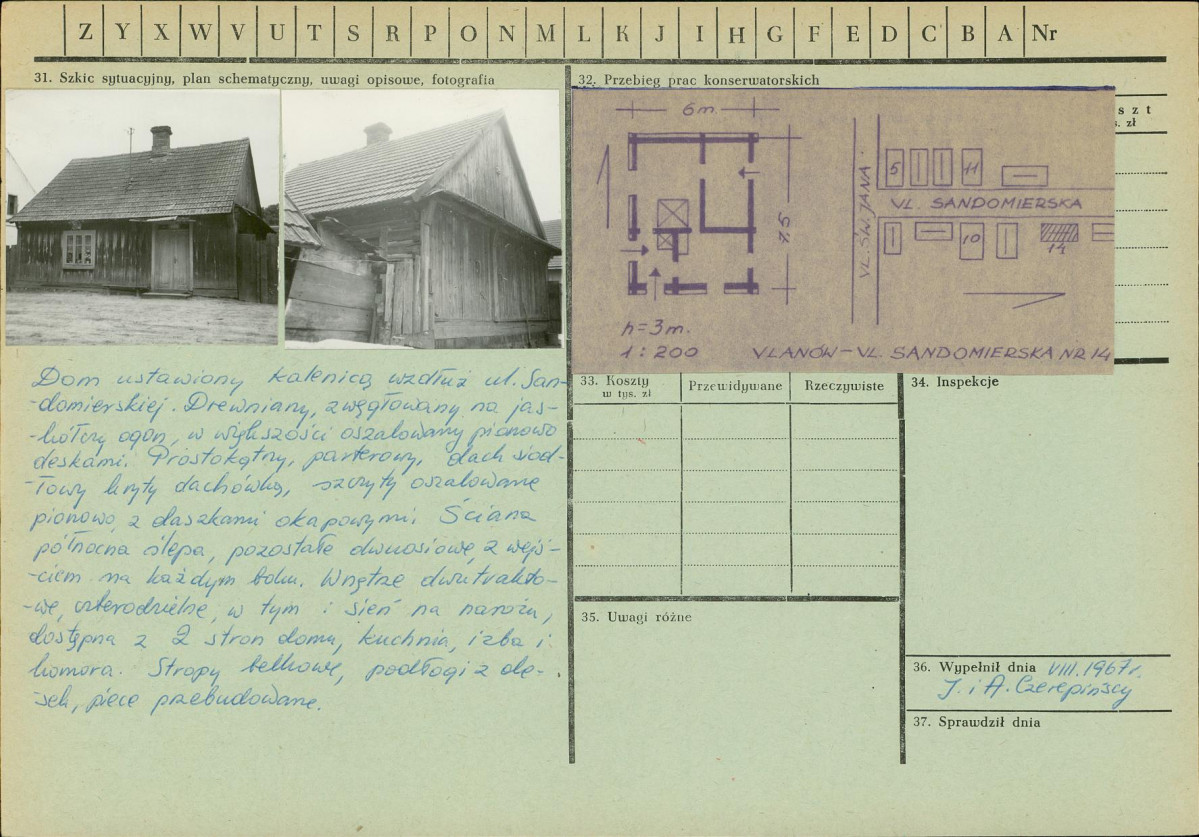 Z Y X W V U T S R P O N M L K J I H G F E D C B A Nr
31. Szkic sytuacyjny, plan schematyczny, uwagi opisowe, fotografia
Dom ustawiony kalenicą wzdłuż ul. San-
-domierskiej. Drewniany, zwęgłowany na jas-
-kółczy ogon, w większości oszalowany pionowo
deskami. Prostokątny, parterowy, dach siod-
-łowy kryty dachówką, szczyty oszalowane
pionowo, z daszkami okapowymi. Ściana
północna ślepa, pozostałe dwuosiowe, z wejś-
-ciem na każdym boku. Wnętrze dwutrakto-
-we, czterodzielne, w tym i sień na narożu,
dostępna z 2 stron domu, kuchnia, izba i
komora. Stropy belkowe, podłogi z de-
-sek, piece przebudowane.
32. Przebieg prac konserwatorskich
szt
s. zł
6 m.
7,5
h=3m.
1:200
UL. ŚW. JANA
5
11
UL. SANDOMIERSKA
10
14
ULANÓW – UL. SANDOMIERSKA NR 14
33. Koszty
w tys. zł
Przewidywane
Rzeczywiste
34. Inspekcje
35. Uwagi różne
36. Wypełnił dnia VIII.1967r.
J. i A. Czerepińscy
37. Sprawdził dnia